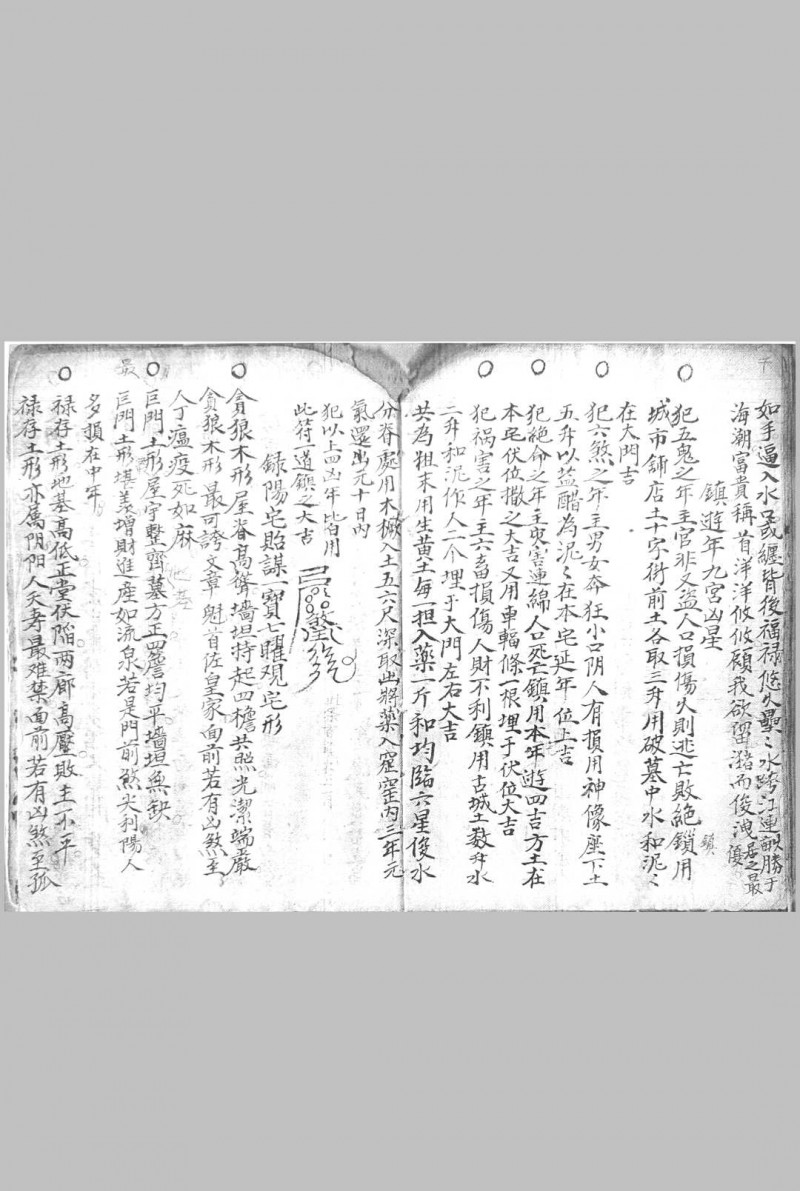 如手逼入水口或纏皆後福禄悠久壘ㄑ水跨江連𠨞勝于
海潮富貴稱首洋洋攸攸顧我欲留瀦而後洩居之最優
鎮逰年九宮凶星
犯五鬼之年主官非火盗人口損傷久則逃亡敗絕鎖用
鎮
城市鋪店土十字街前土各取三升用破墓中水和泥ㄑ
在大門吉
犯六煞之年主男女奔狂小口阴人有損用神像座下土
五升以盐醋為泥ㄑ在本宅延年位上吉
犯絕命之年主灾害連綿人口死亡鎮用本年遊四吉方土在
本宅伏位撒之大吉又用車輻條一根埋于伏位大吉
犯祸害之年主六畜損傷人財不利鎮用古城土数升水
二升和泥作人二个埋于大門左右大吉
共為粗末用生黄土每一担入藥一斤和均臨六星後水
分脊處用木橛入土五六尺深取出將藥入窟窂内三年元
氣還出元十日内
犯以上四凶年皆用
此符一道鎮之大吉
録陽宅貽謀一寳七曜观宅形
貪狼木形屋脊高聳墙垣持起四檐共照光潔端嚴
貪狼木形最可誇文章魁首佐皇家面前若有凶煞至
人丁瘟疫死如麻
地基
巨門土形屋宇整齊墓方正四簷均平墻垣無缺
巨門土形堪羡增財進産如流泉若是門前煞尖利陽人
最
多損在中年
禄存土形地基高低正堂伏陷两廊高壓敗土不平
禄存土形亦属阴阳人夭寿最难禁面前若有凶煞至孤